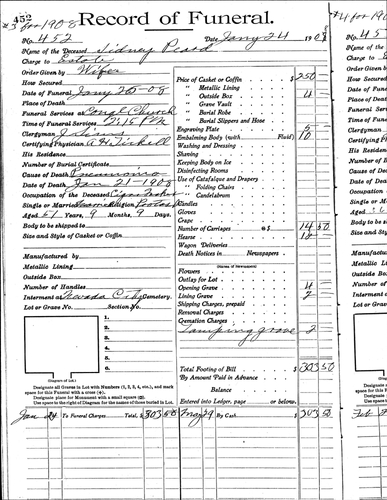 452
#3 for 1908
Record of Funeral.
No. 452 Date Jany 24 190
Name of the Deceased Sidney Peard
Charge to Estate
Order Given by Wife
How Secured
Date of Funeral Jany 26-08
Place of Death
Funeral Services at Congl Church
Time of Funeral Services 2:15 PM
Clergyman J. Sims
Certifying Physician
His Residence
Number of Burial Certificate
Cause of Death Pneumonia
Date of Death Jan 21-1908
Occupation of the Deceased
Single or Married Religion
Aged Years, 9 Months, 9 Days.
Body to be shipped to
Size and Style of Casket or Coffin
Manufactured by
Metallic Lining
Outside Box
Number of Handles
Interment at Nevada City Cemetery.
Lot or Grave No. Section No.
1.
2.
3.
4.
5.
6.
(Diagram of Lot.)
Designate all Graves in Lot with Numbers (1, 2, 3, 4, etc.), and mark
space for this Funeral with a cross (+).
Designate place for Monument with a small square (□).
Use space to right of Diagram for the names of those buried in Lot.
Price of Casket or Coffin $ 250
" Metallic Lining
" Outside Box 4
" Grave Vault
" Burial Robe
" Burial Slippers and Hose
Engraving Plate
Embalming Body (with Fluid) 10
Washing and Dressing
Shaving
Keeping Body on Ice
Disinfecting Rooms
Use of Catafalque and Drapery
" Folding Chairs
" Candelabrum
Candles
Gloves
Crape
Number of Carriages @ $ 14 50
Hearse
Wagon Deliveries
Death Notices in Newspapers
(Names of Newspapers)
Flowers
Outlay for Lot
Opening Grave 4
Lining Grave 2
Shipping Charges, prepaid
Removal Charges
Cremation Charges
Tamping grave 2
Total Footing of Bill $ 303 50
By Amount Paid in Advance
Balance
Entered into Ledger, page or below.
Jan 24 To Funeral Charges Total, $ 303 50 May 29 By Cash $ 303 50